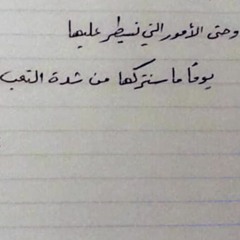 وحتى الأمور التي نسيطر عليها
يومًا ما سنتركها من شدة التعب